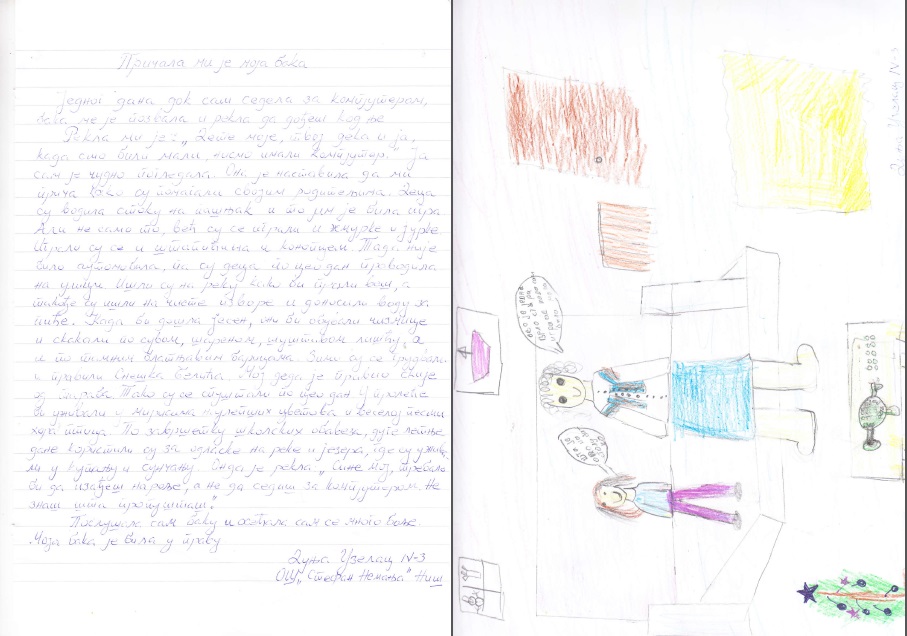 Причала ми је моја бака
Једног дана док сам седела за компјутером,
бака ме је позвала и рекла да дођеш код ње
Рекла ми је: „Дете моје, твој дека и ја,
када смо били мали, нисмо имали компјутор." Ја
сам је чудно погледала. Она је наставила да ми
прича како су помагали својим родитељима. Деца
су водила стоку на пашњак и то им је била игра.
Али не само то, већ су се играли и жмурке и јурке.
Играло су се и штаповима и канапом. Тада није
било аутомобила, па су деца по цео дан проводила
на улици. Ишли су на реку како би прали, а
такође су ишли на чисте изворе и доносили воду за
пиће. Када би дошла јесен, они би обували чизмице
и скакали по сувом, шареном, шуштавом лишћу, а
и по тамним блатњавим барицама. Зими су се грудвали
и правили Снешка Белића. Мој деда је правио скије
од Тако су се спуштали по цео дан. У пролеће
би уживали у мирисима најлепших цветова и веселој песми
птица. По завршетку школских обавеза, дуге летње
дане користили су за одласке на реке и језера, где су ужива-
ли у купању и сунчању. Онда је рекла: „Сине мој, требало
би да изађеш напоље, а не да седиш за компјутером. Не
знаш шта пропушташ."
Послушала сам баку и осећала сам се много боље.
Моја бака је била у праву
Дуња Узелац IV-3
ОШ „Стефан Немања" Ниш
Дуња Узелац IV-3